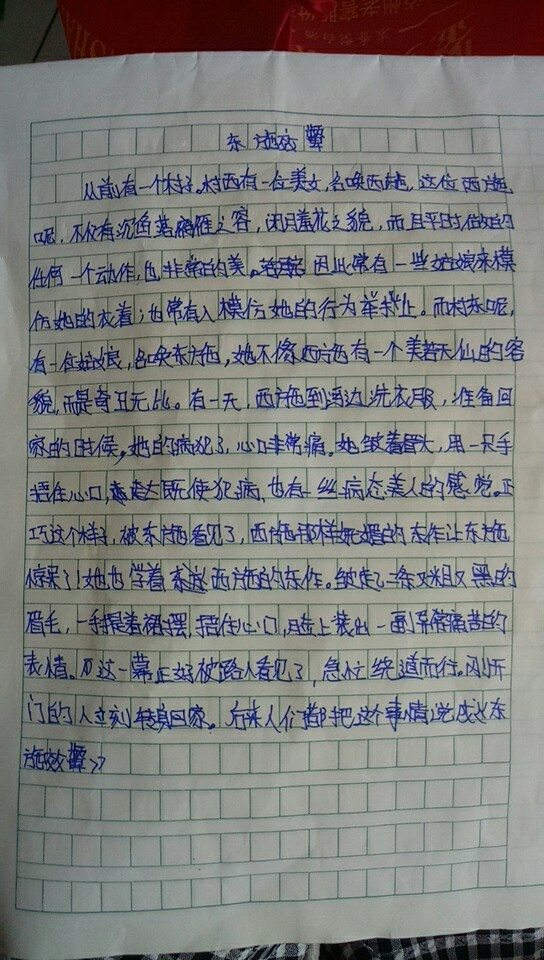 泸州老窖股份
浓香型白酒
东施效颦
从前有一个村子。村西有一位美女,名唤西施。这位西施
呢,不仅有沉鱼落雁之容,闭月羞花之貌,而且平时做的
任何一个动作,也非常的美。因此常有一些姑娘来模
仿她的衣着;也常有人模仿她的行为举止。而村东呢,
有一位姑娘,名唤东施,她不像西施有一个美若天仙的容
貌,而是奇丑无比。有一天,西施到河边洗衣服,准备回
家的时候,她的病犯了,心口非常痛。她皱着眉头,用一只手
捂住心口,既使犯病,也有一丝病态美人的感觉。正
巧这个样子,被东施看见了,西施那样妩媚的东作让东施
惊呆了!她也学着西施的东作。皱起了二条又粗又黑的
眉毛,一手提着裙摆,捂住心口,脸上装出一副异常痛苦的
表情。而这一幕正好被路人看见了,急忙绕道而行。刚开
门的人立刻转身回家。后来人们都把这个事情说成《东
施效颦》